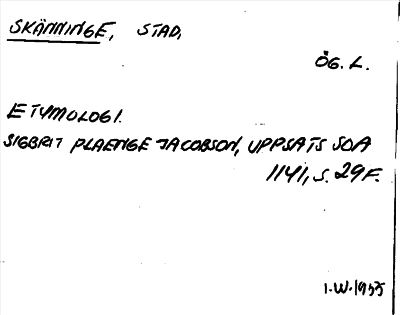 SKÄNNINGE, STAD,
ÖG. L.
ETYMOLOGI.
SIGBRIT PLAENGE JACOBSON, UPPSATS SOA
1141, S. 29 F.
I.W. 1955